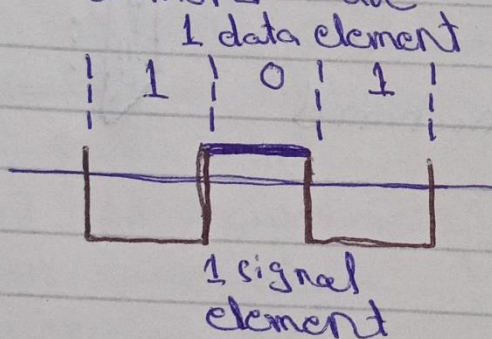 1 data element
1 0 1
1 signal
element